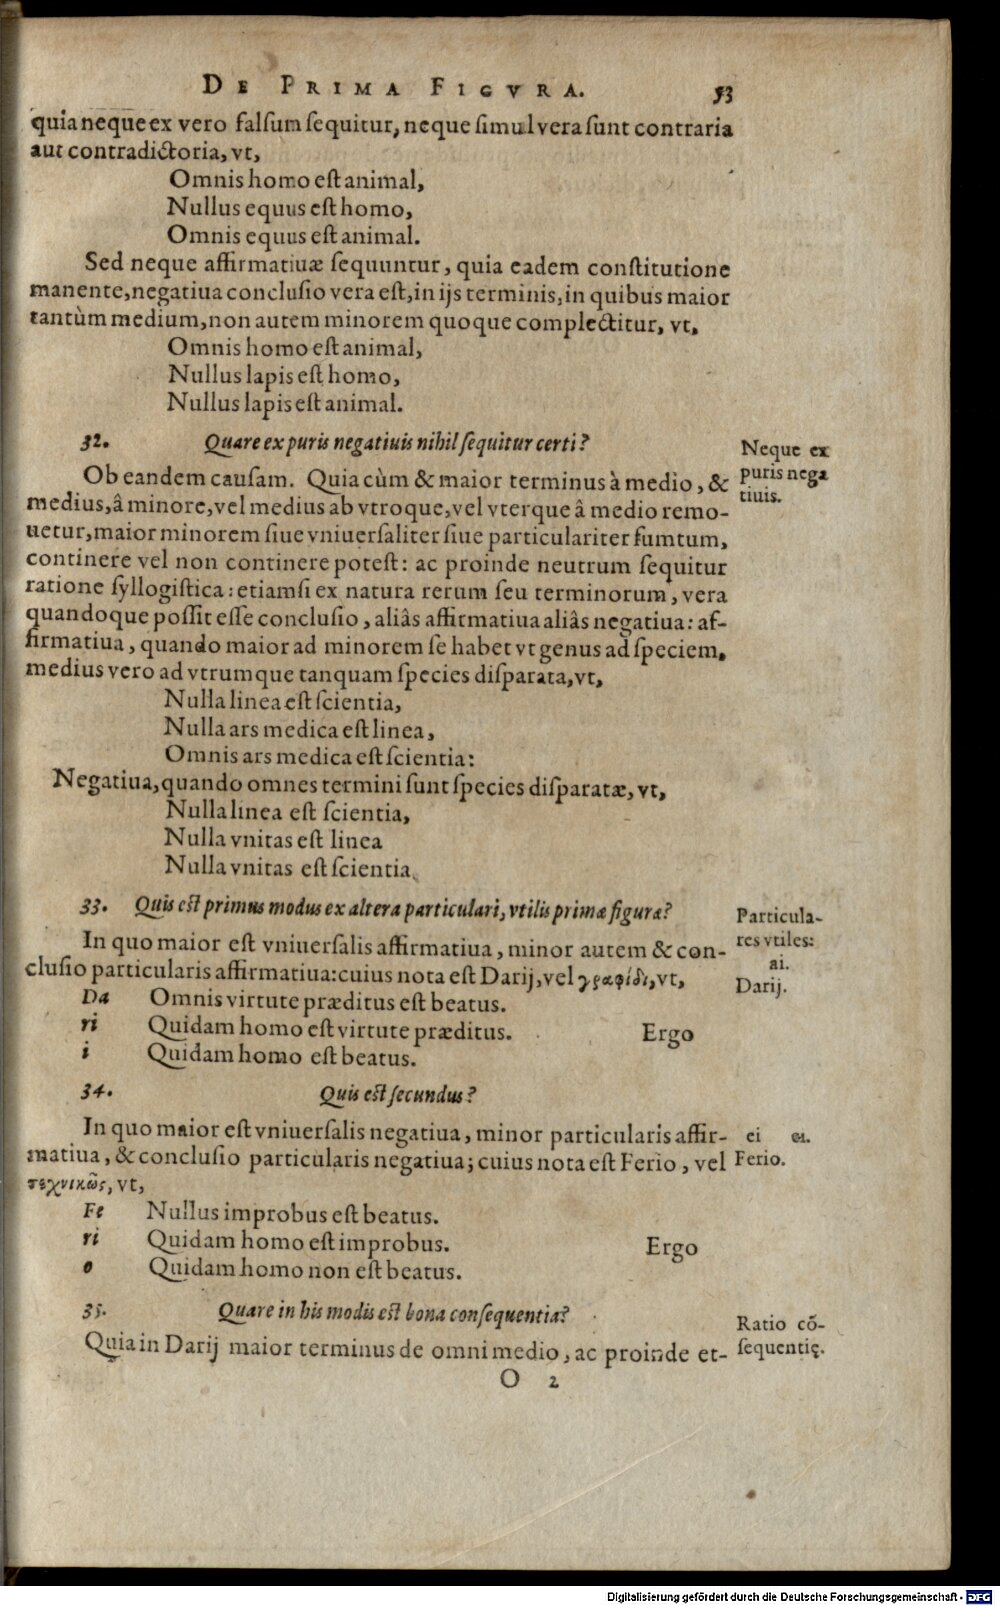 DE PRIMA FIGVRA. 53
quia neque ex vero falſum ſequitur, neque ſimul vera ſunt contraria
aut contradictoria, vt,
Omnis homo eſt animal,
Nullus equus eſt homo,
Omnis equus eſt animal.
Sed neque affirmatiuæ ſequuntur, quia eadem conſtitutione
manente, negatiua concluſio vera eſt, in ijs terminis, in quibus maior
tantùm medium, non autem minorem quoque complectitur, vt,
Omnis homo eſt animal,
Nullus lapis eſt homo,
Nullus lapis eſt animal.
32. Quare ex puris negatiuis nihil ſequitur certi?
Neque ex
puris nega
tiuis.
Ob eandem cauſam. Quia cùm & maior terminus à medio, &
medius, â minore, vel medius ab vtroque, vel vterque â medio remo-
uetur, maior minorem ſiue vniuerſaliter ſiue particulariter ſumtum,
continere vel non continere poteſt: ac proinde neutrum ſequitur
ratione ſyllogiſtica: etiamſi ex natura rerum ſeu terminorum, vera
quandoque poſſit eſſe concluſio, aliâs affirmatiua aliâs negatiua: af-
firmatiua, quando maior ad minorem ſe habet vt genus ad ſpeciem,
medius vero ad vtrumque tanquam ſpecies diſparata, vt,
Nulla linea eſt ſcientia,
Nulla ars medica eſt linea,
Omnis ars medica eſt ſcientia:
Negatiua, quando omnes termini ſunt ſpecies diſparatæ, vt,
Nulla linea eſt ſcientia,
Nulla vnitas eſt linea
Nulla vnitas eſt ſcientia.
33. Quis eſt primus modus ex altera particulari, vtilis primæ figuræ?
Particula-
res vtiles:
ai.
Darij.
In quo maior eſt vniuerſalis affirmatiua, minor autem & con-
cluſio particularis affirmatiua: cuius nota eſt Darij, vel γραφίδι, vt,
Da Omnis virtute præditus eſt beatus.
ri Quidam homo eſt virtute præditus. Ergo
i Quidam homo eſt beatus.
34. Quis eſt ſecundus?
In quo maior eſt vniuerſalis negatiua, minor particularis affir-
matiua, & concluſio particularis negatiua; cuius nota eſt Ferio, vel
τεχνικῶς, vt,
ei
Ferio.
Fe Nullus improbus eſt beatus.
ri Quidam homo eſt improbus. Ergo
o Quidam homo non eſt beatus.
35. Quare in his modis eſt bona conſequentia?
Ratio cō-
ſequentię.
Quia in Darij maior terminus de omni medio, ac proinde et-
O 2
Digitalisierung gefördert durch die Deutsche Forschungsgemeinschaft - DFG